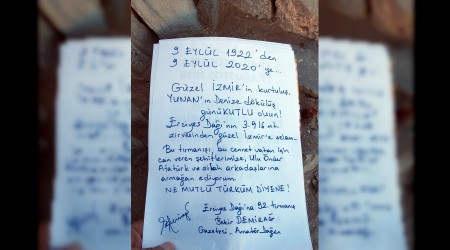 9 EYLÜL 1922'den
9 EYLÜL 2020'ye...
Güzel İZMİR'in kurtuluş,
YUNAN'ın Denize dökülüş
günü KUTLU olsun!
Erciyes Dağı'nın 3.916 mt.
zirvesinden güzel İzmir'e selam...
Bu tırmanışı, bu cennet vatan için
can veren şehitlerimize, Ulu Önder
Atatürk ve silah arkadaşlarına
armağan ediyorum.
NE MUTLU TÜRKÜM DİYENE!
Erciyes Dağı'na 92. tırmanış
Bekir DEMİRAĞ
Gazeteci-Amatör Dağcı